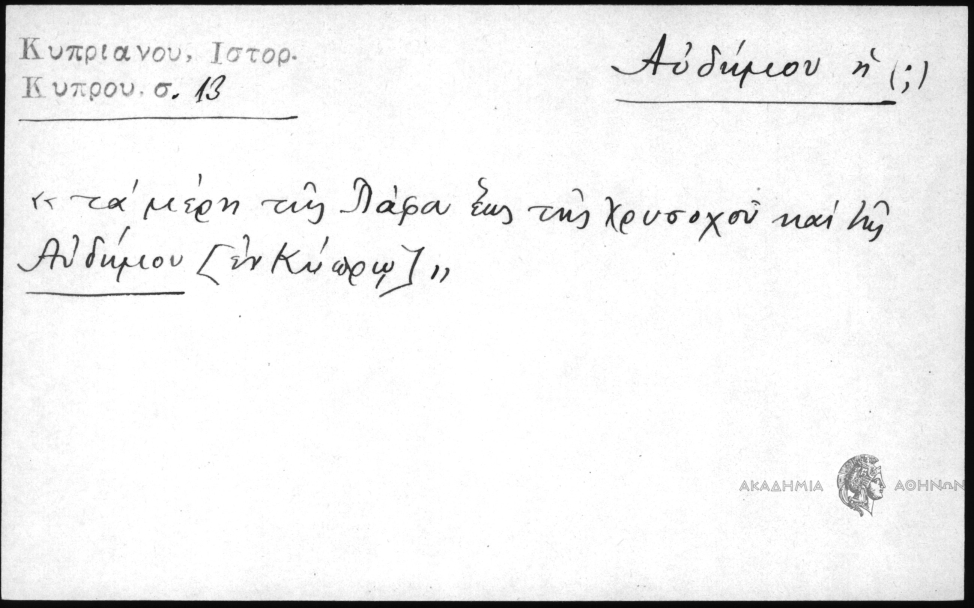 Κυπριανου, Ιστορ.
Κυπρου. σ. 13
Αὐδήμιου ἡ (;)
«τά μέρη τῆς Πάφου ἕως τῆς Χρυσοχοῦ καί τῆς
Αὐδήμιου [ἐν Κύπρῳ]»
ΑΚΑΔΗΜΙΑ ΑΘΗΝΩΝ